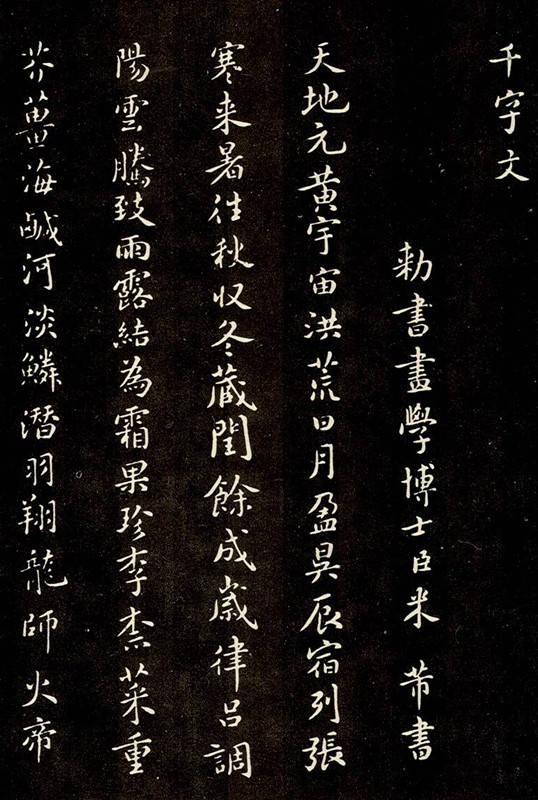 千字文
勑書畫學博士臣米芾書
天地元黄宇宙洪荒日月盈昃辰宿列張
寒来暑往秋収冬蔵閏餘成嵗律吕調
陽雲騰致雨露結為霜果珍李柰菜重
芥薑海鹹河淡鱗潛羽翔龍師火帝